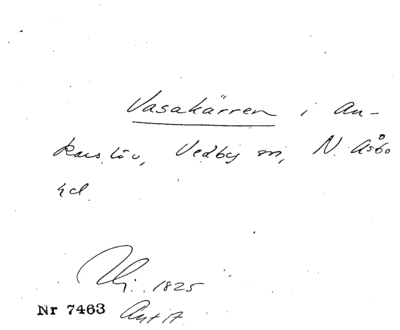 Vasakärren i An-
karslöv, Vedby sn, N. Åsbo
hd.
1825
Nr 7463